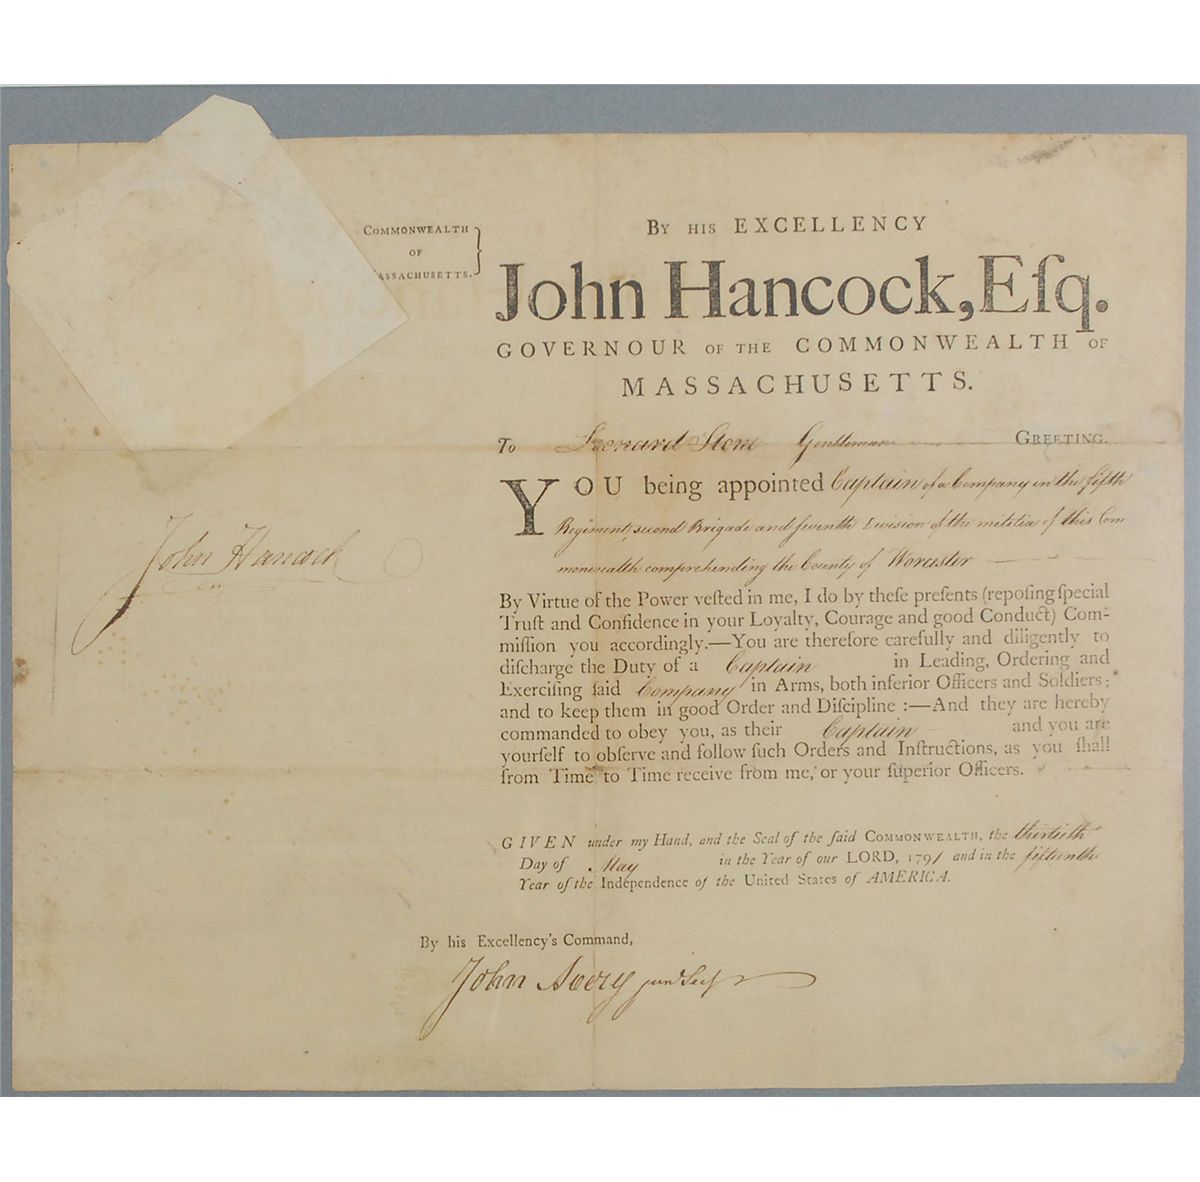 COMMONWEALTH
OF
MASSACHUSETTS.
BY HIS EXCELLENCY
John Hancock, Eſq.
GOVERNOUR OF THE COMMONWEALTH OF
MASSACHUSETTS.
To Leonard Stone Gentleman GREETING.
YOU being appointed Captain of a Company in the fifth
Regiment, second Brigade and seventh Division of the militia of this Com
monwealth comprehending the County of Worcester
By Virtue of the Power veſted in me, I do by theſe preſents (repoſing ſpecial
Truſt and Confidence in your Loyalty, Courage and good Conduct) Com-
miſſion you accordingly.—You are therefore carefully and diligently to
diſcharge the Duty of a Captain in Leading, Ordering and
Exerciſing ſaid Company in Arms, both inferior Officers and Soldiers;
and to keep them in good Order and Diſcipline :—And they are hereby
commanded to obey you, as their Captain and you are
yourſelf to obſerve and follow ſuch Orders and Inſtructions, as you ſhall
from Time to Time receive from me, or your ſuperior Officers.
GIVEN under my Hand, and the Seal of the ſaid COMMONWEALTH, the thirtieth
Day of May in the Year of our LORD, 1791 and in the fifteenth
Year of the Independence of the United States of AMERICA.
John Hancock
By his Excellency's Command,
John Avery junr Secy